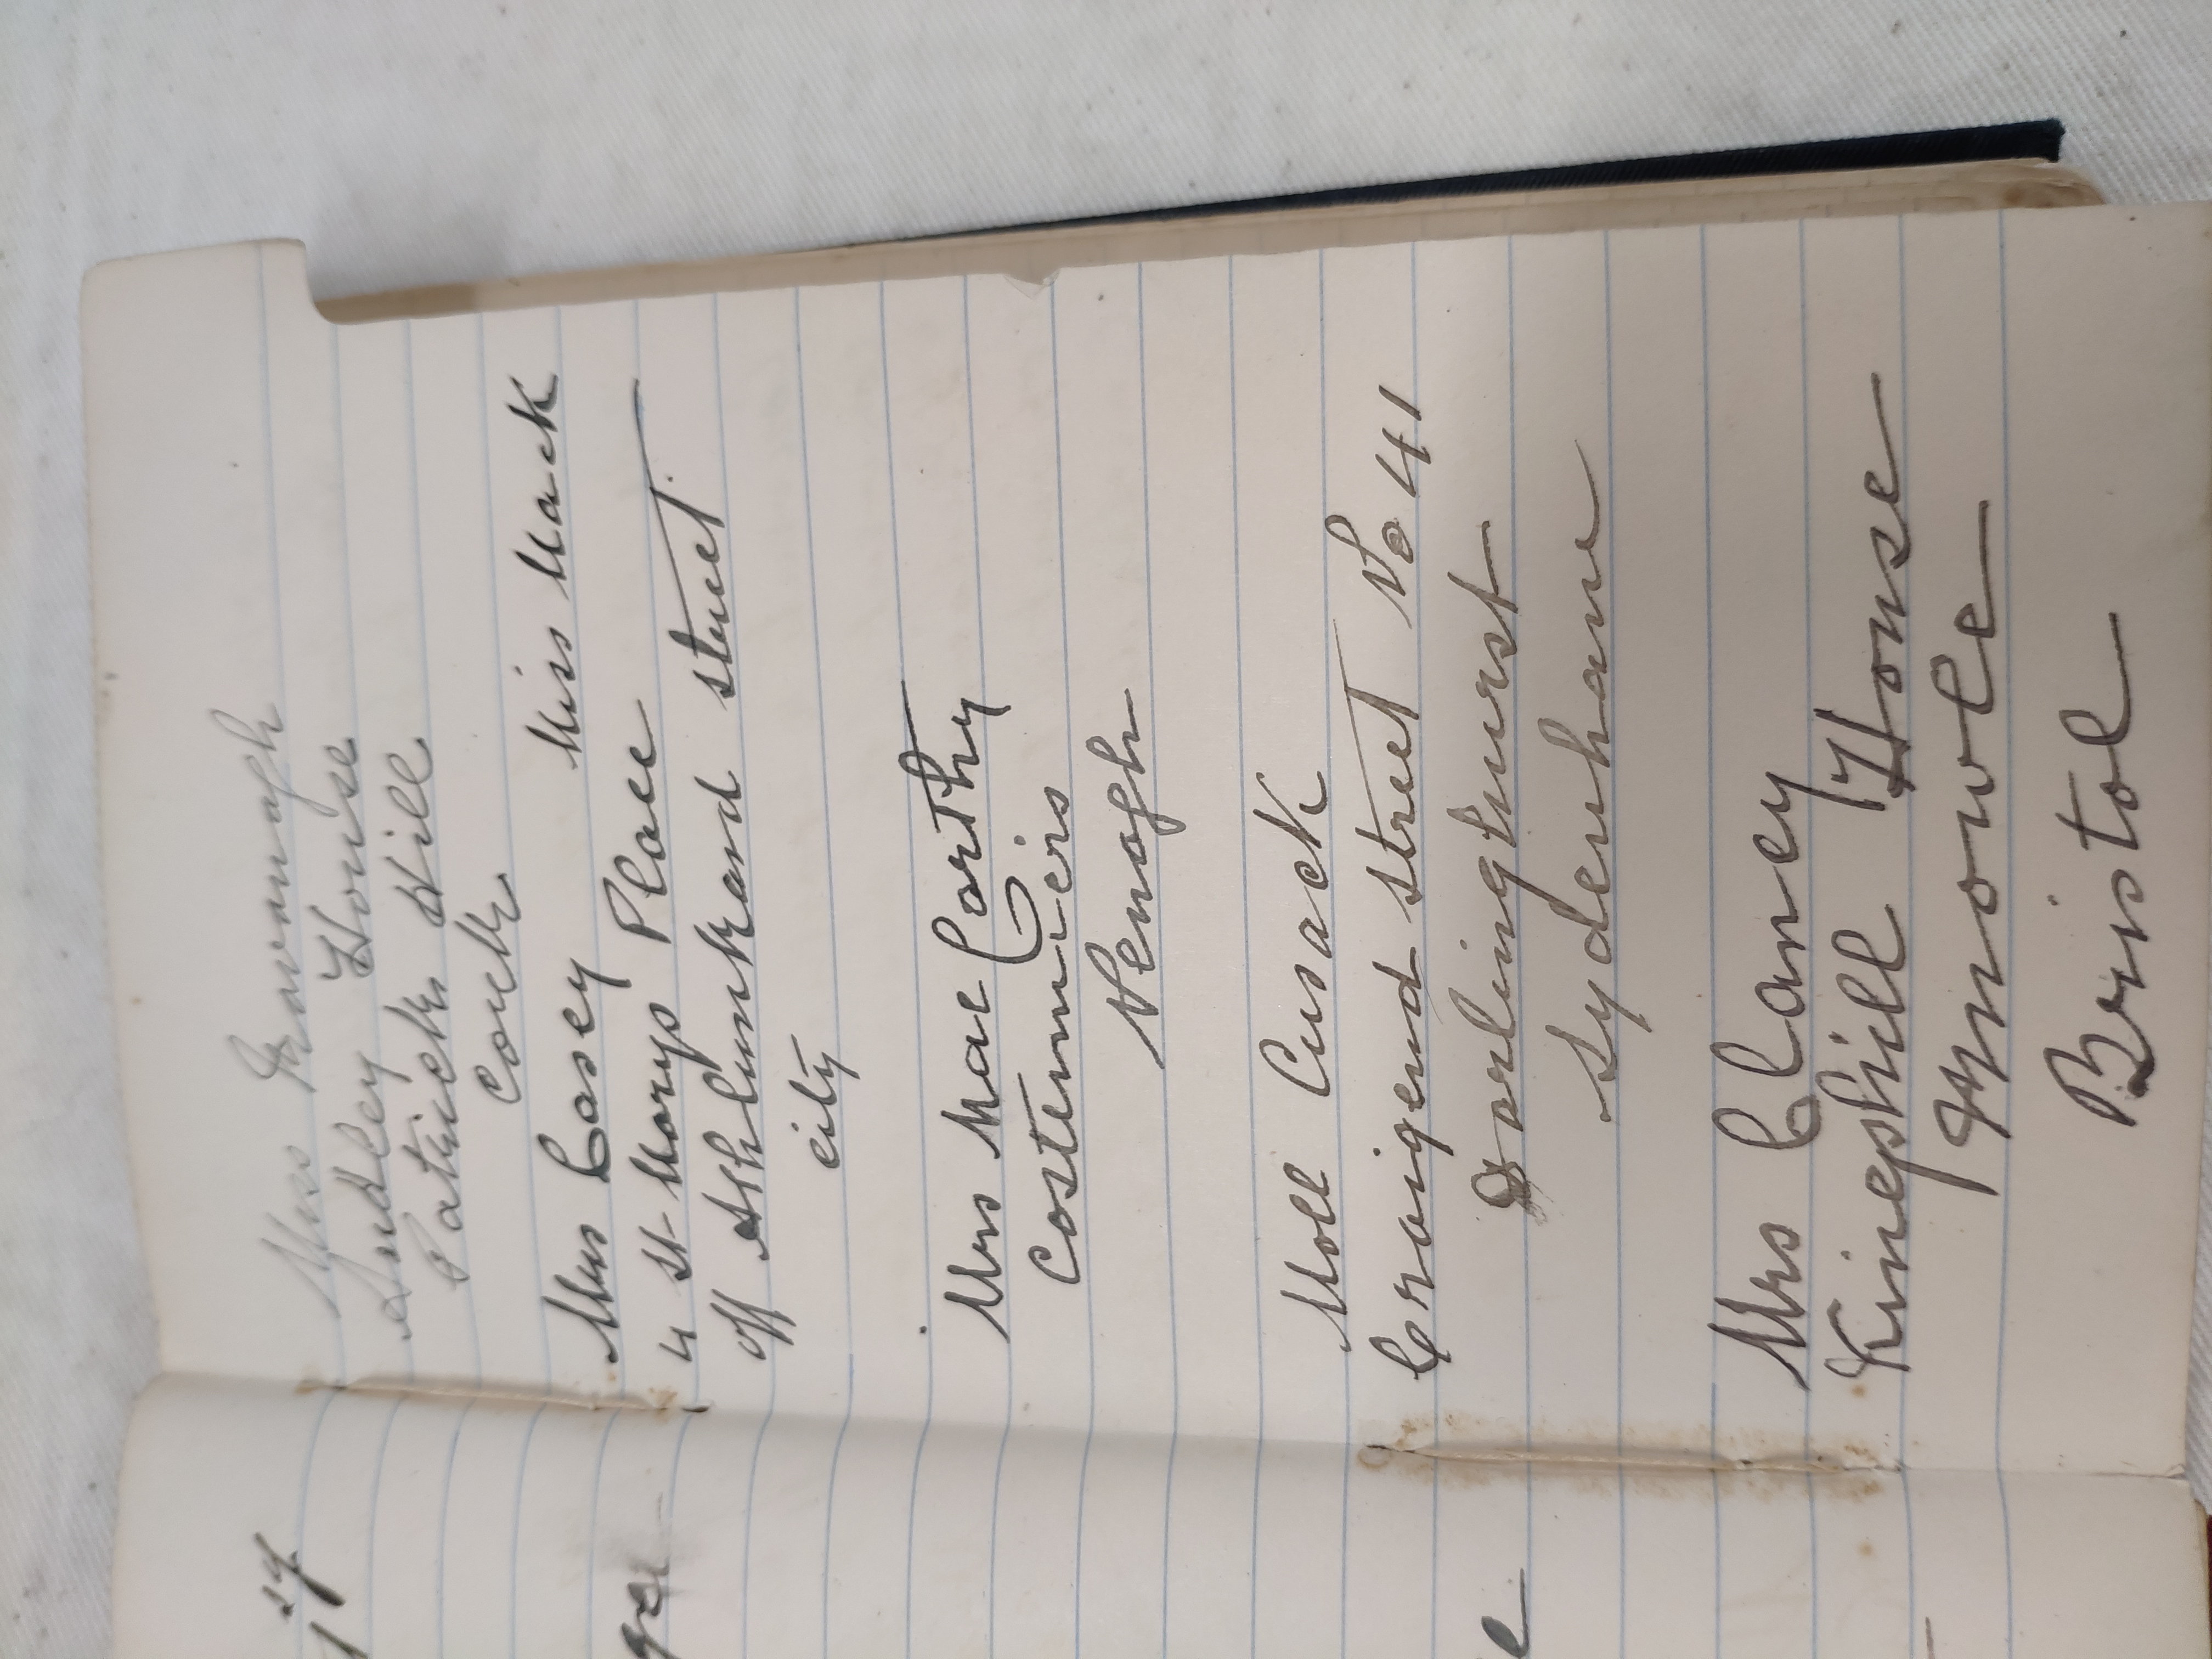 Miss Kavanagh
Audley House
Patrick Hill
Cork
Miss Mack
Mrs Casey
4 St Marys Place
off Athlunkard street
city
Mrs Mac Carthy
Costumiers
Nenagh
Moll Cusack
Craigend street No 41
Darlinghurst
Sydenham
Mrs Clancy
Kineshill House
Knowle
Bristol